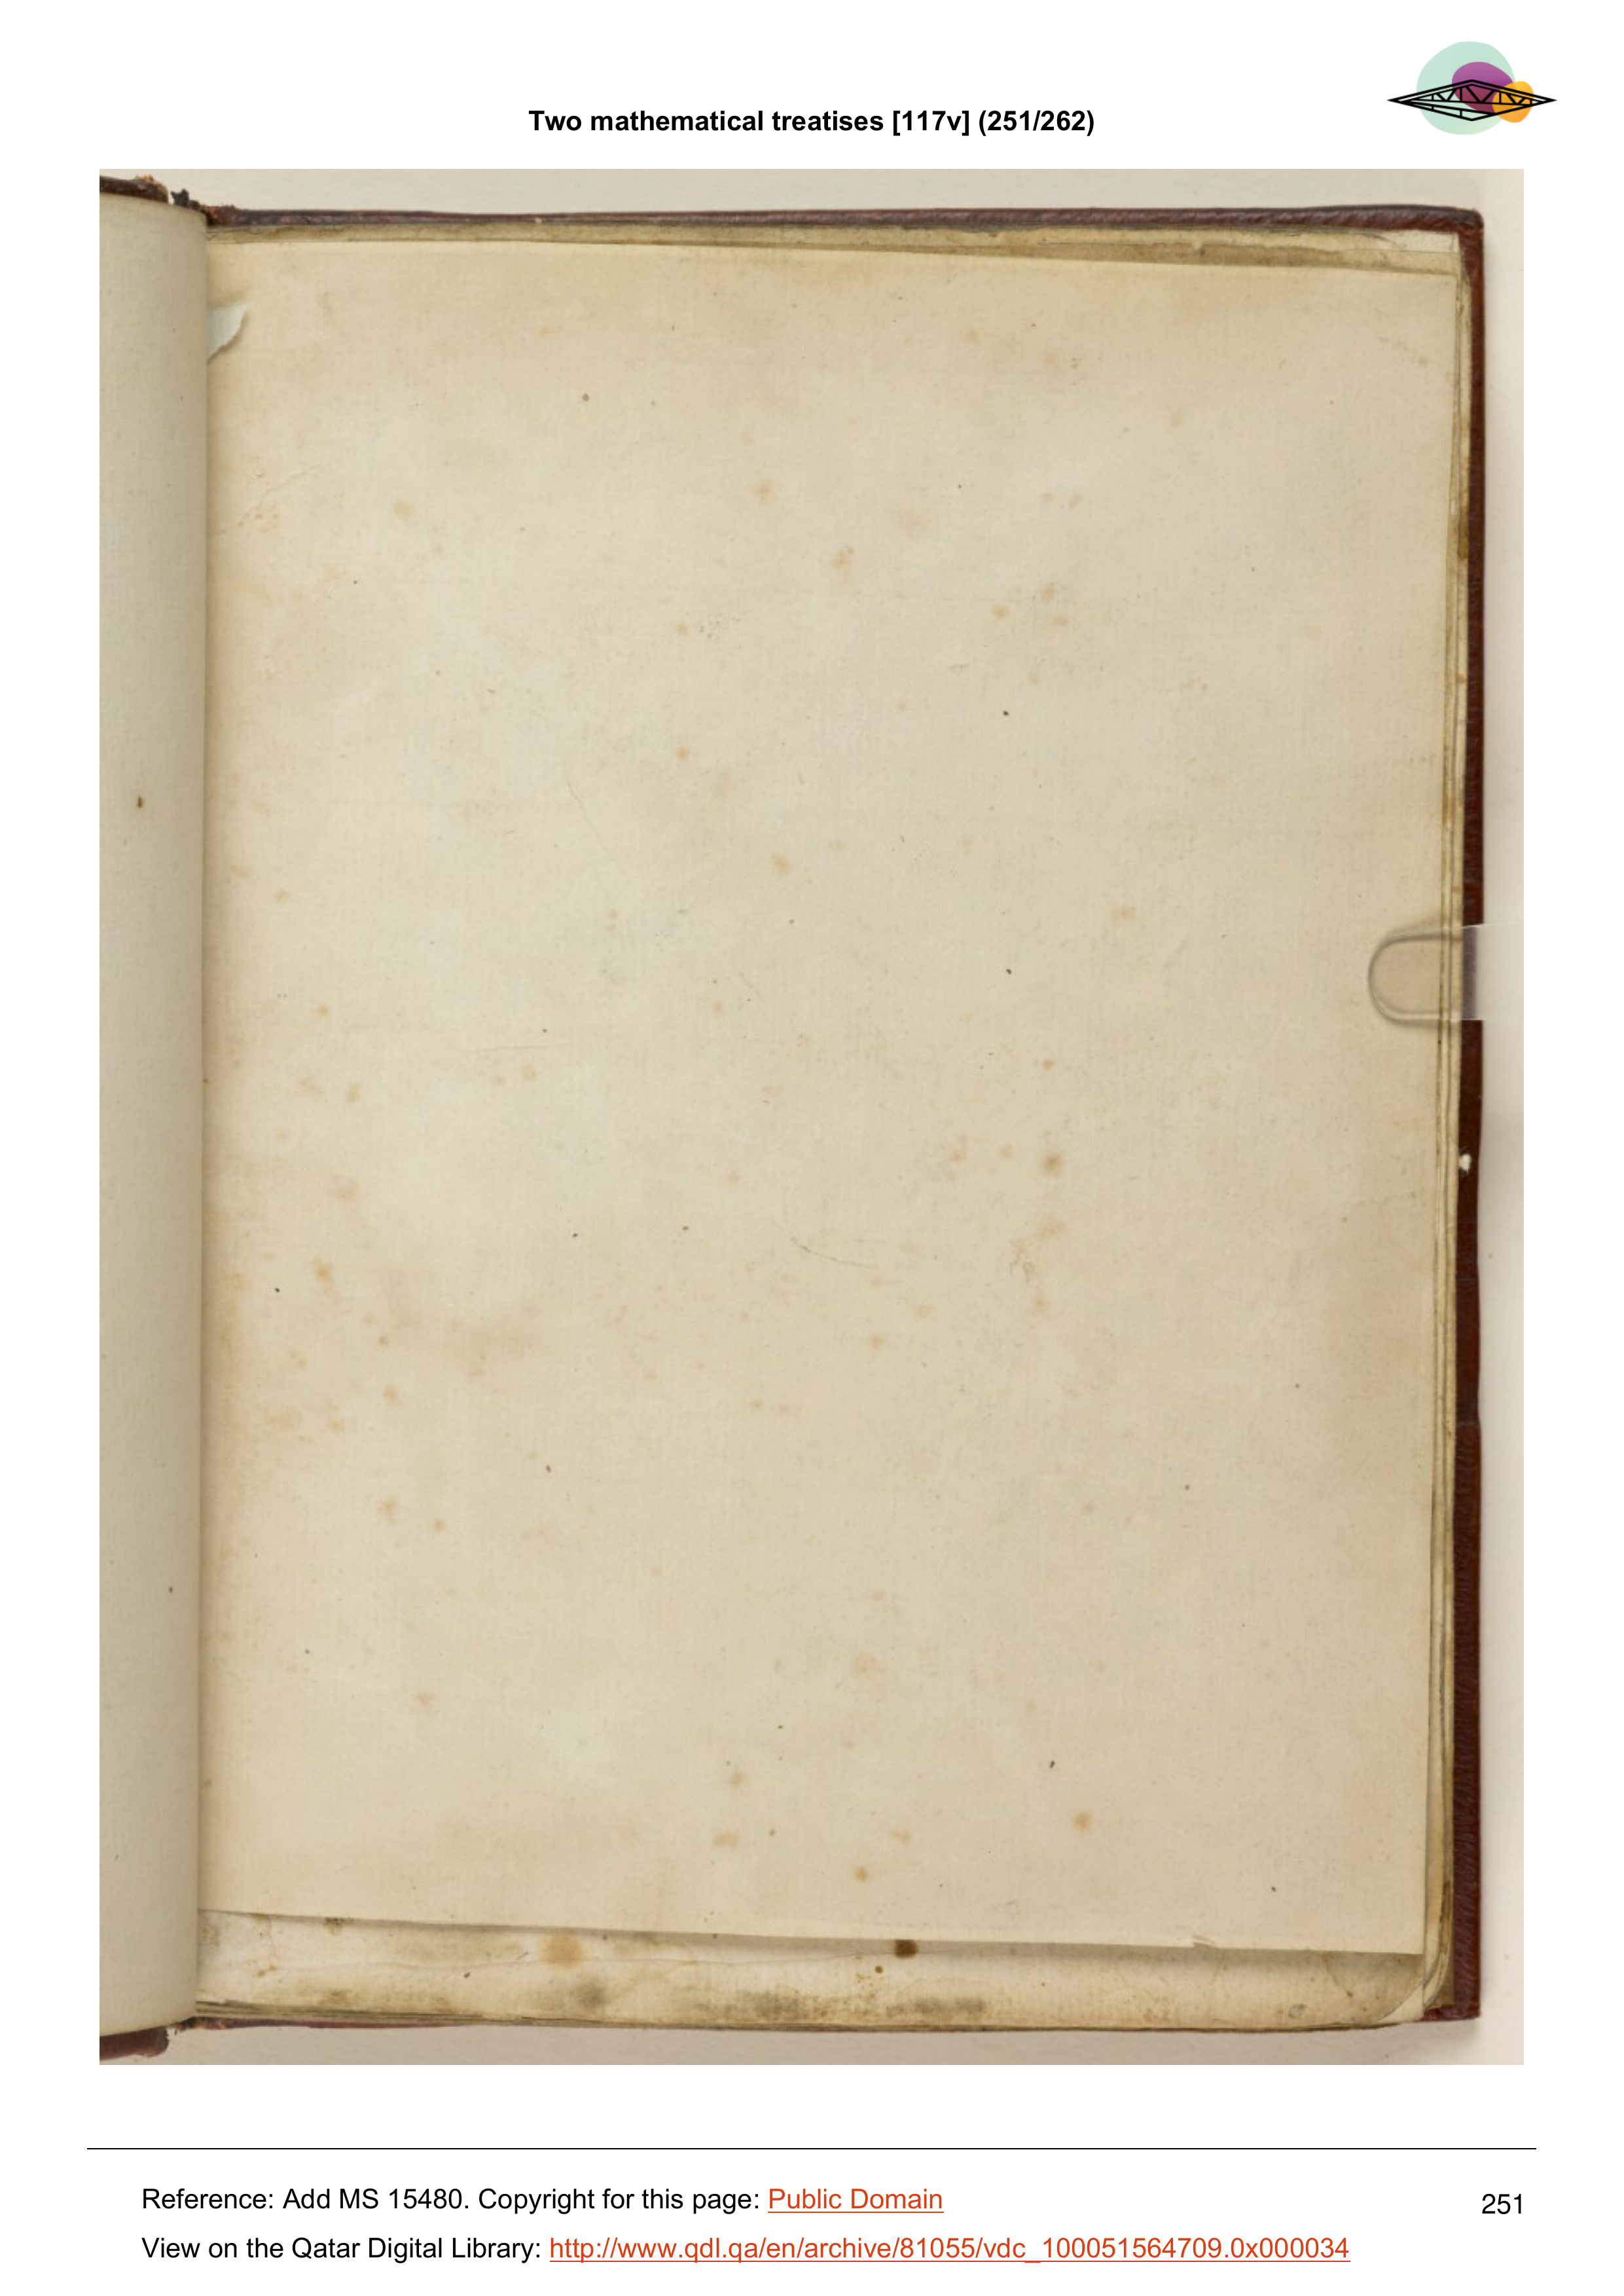 Two mathematical treatises [117v] (251/262)
Reference: Add MS 15480. Copyright for this page: Public Domain
251
View on the Qatar Digital Library: http://www.qdl.qa/en/archive/81055/vdc_100051564709.0x000034